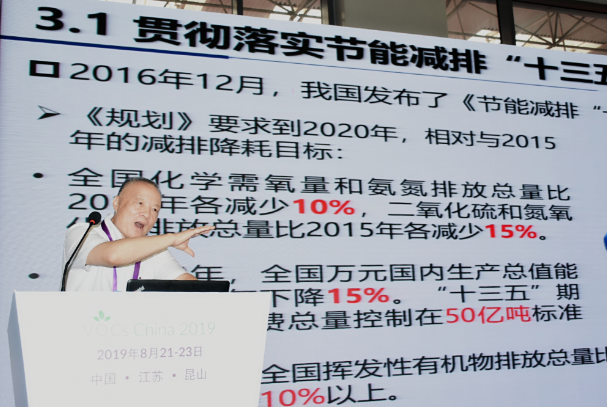 3.1 贯彻落实节能减排“十三五
2016年12月，我国发布了《节能减排“
《规划》要求到2020年，相对与2015
年的减排降耗目标：
全国化学需氧量和氨氮排放总量比
年各减少10%，二氧化硫和氮氧
排放总量比2015年各减少15%。
年，全国万元国内生产总值能
下降15%。“十三五”期
费总量控制在50亿吨标准
全国挥发性有机物排放总量比
10%以上。
VOCs China 2019
2019年8月21-23日
中国 • 江苏 • 昆山